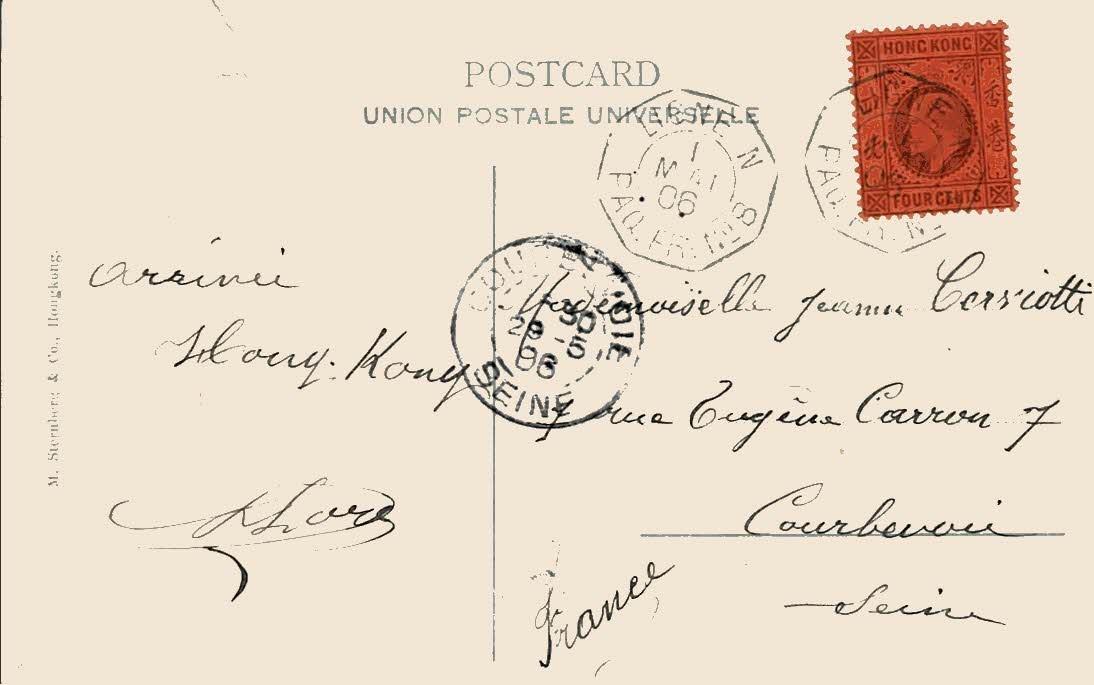 POSTCARD
UNION POSTALE UNIVERSELLE
HONG KONG
香港
FOUR CENTS
LIGNE N
1
MAI
06
PAQ. FR. Nº 8
LIGNE
06
PAQ. FR. Nº
COURBEVOIE
30
29 -5
06
SEINE
M. Sternberg & Co., Hongkong.
Arrivée
Hong-Kong
Mademoiselle Jeanne
7 rue Eugène Carron 7
Courbevoie
Seine
France